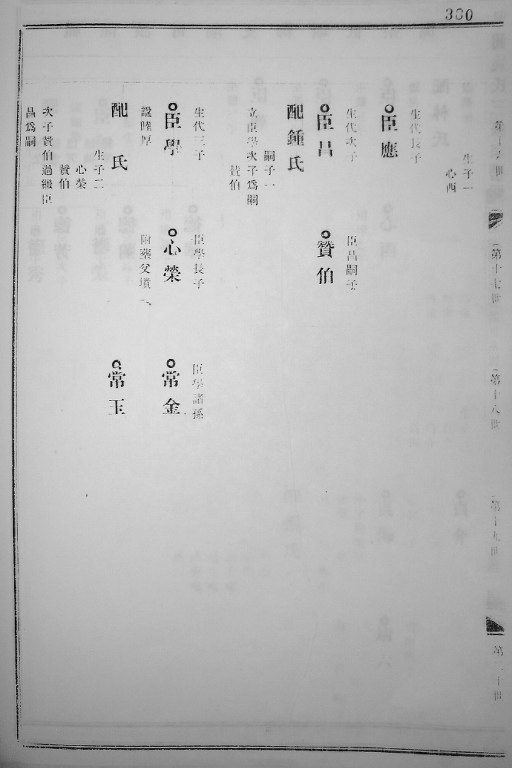 380
第十七世
第十八世
第十九世
第二十世
生子一
心酉
生代長子
臣應
生代次子
臣昌
臣昌嗣子
贊伯
配鍾氏
嗣子一
贊伯
立臣學次子爲嗣
生代三子
臣學
諡睦厚
臣學長子
心榮
附葬父墳
臣學諸孫
常金
常玉
配 氏
生子二
心榮
贊伯
次子贊伯過繼臣
昌爲嗣